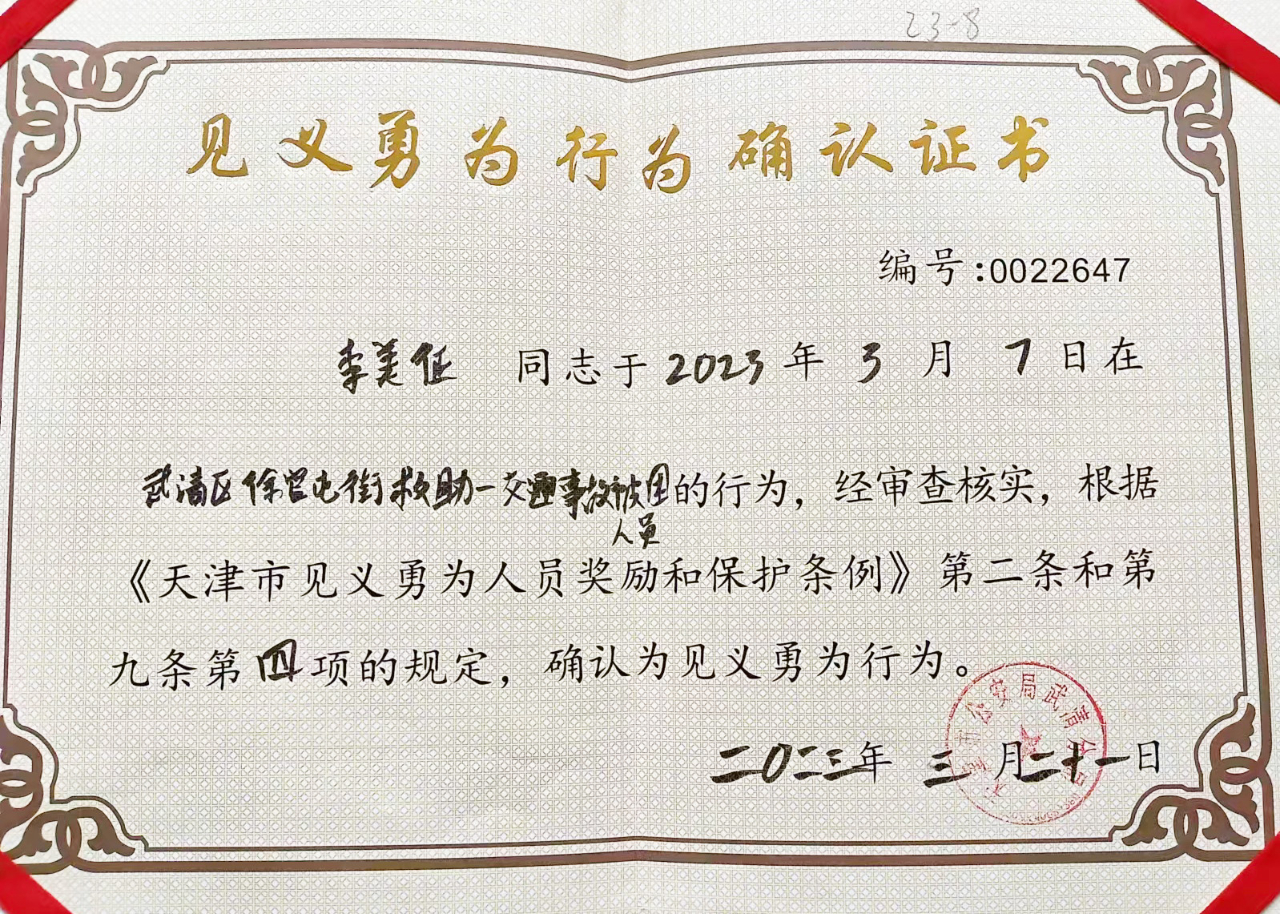 23-8
见义勇为行为确认证书
编号:0022647
李美征 同志于 2023 年 3 月 7 日在
武清区徐官屯街救助一交通事故被困的行为，经审查核实，根据
人员
《天津市见义勇为人员奖励和保护条例》第二条和第
九条第四项的规定，确认为见义勇为行为。
天津市公安局武清分局
二〇二三年 三 月二十一日